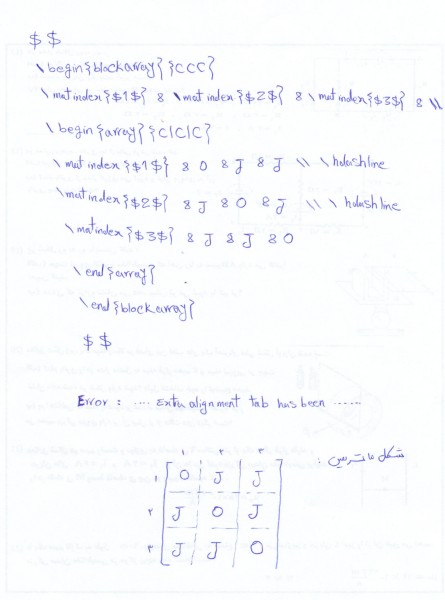 $ $
\begin{blockarray}{ccc}
\matindex{$1$} & \matindex{$2$} & \matindex{$3$} & \\
\begin{array}{c|c|c}
\matindex{$1$} & 0 & J & J \\ \hdashline
\matindex{$2$} & J & 0 & J \\ \hdashline
\matindex{$3$} & J & J & 0
\end{array}
\end{blockarray}
$ $
Error : .... Extra alignment tab has been ......
شکل ماتریس :
۱ ۲ ۳
۱ 0 J J
۲ J 0 J
۳ J J 0